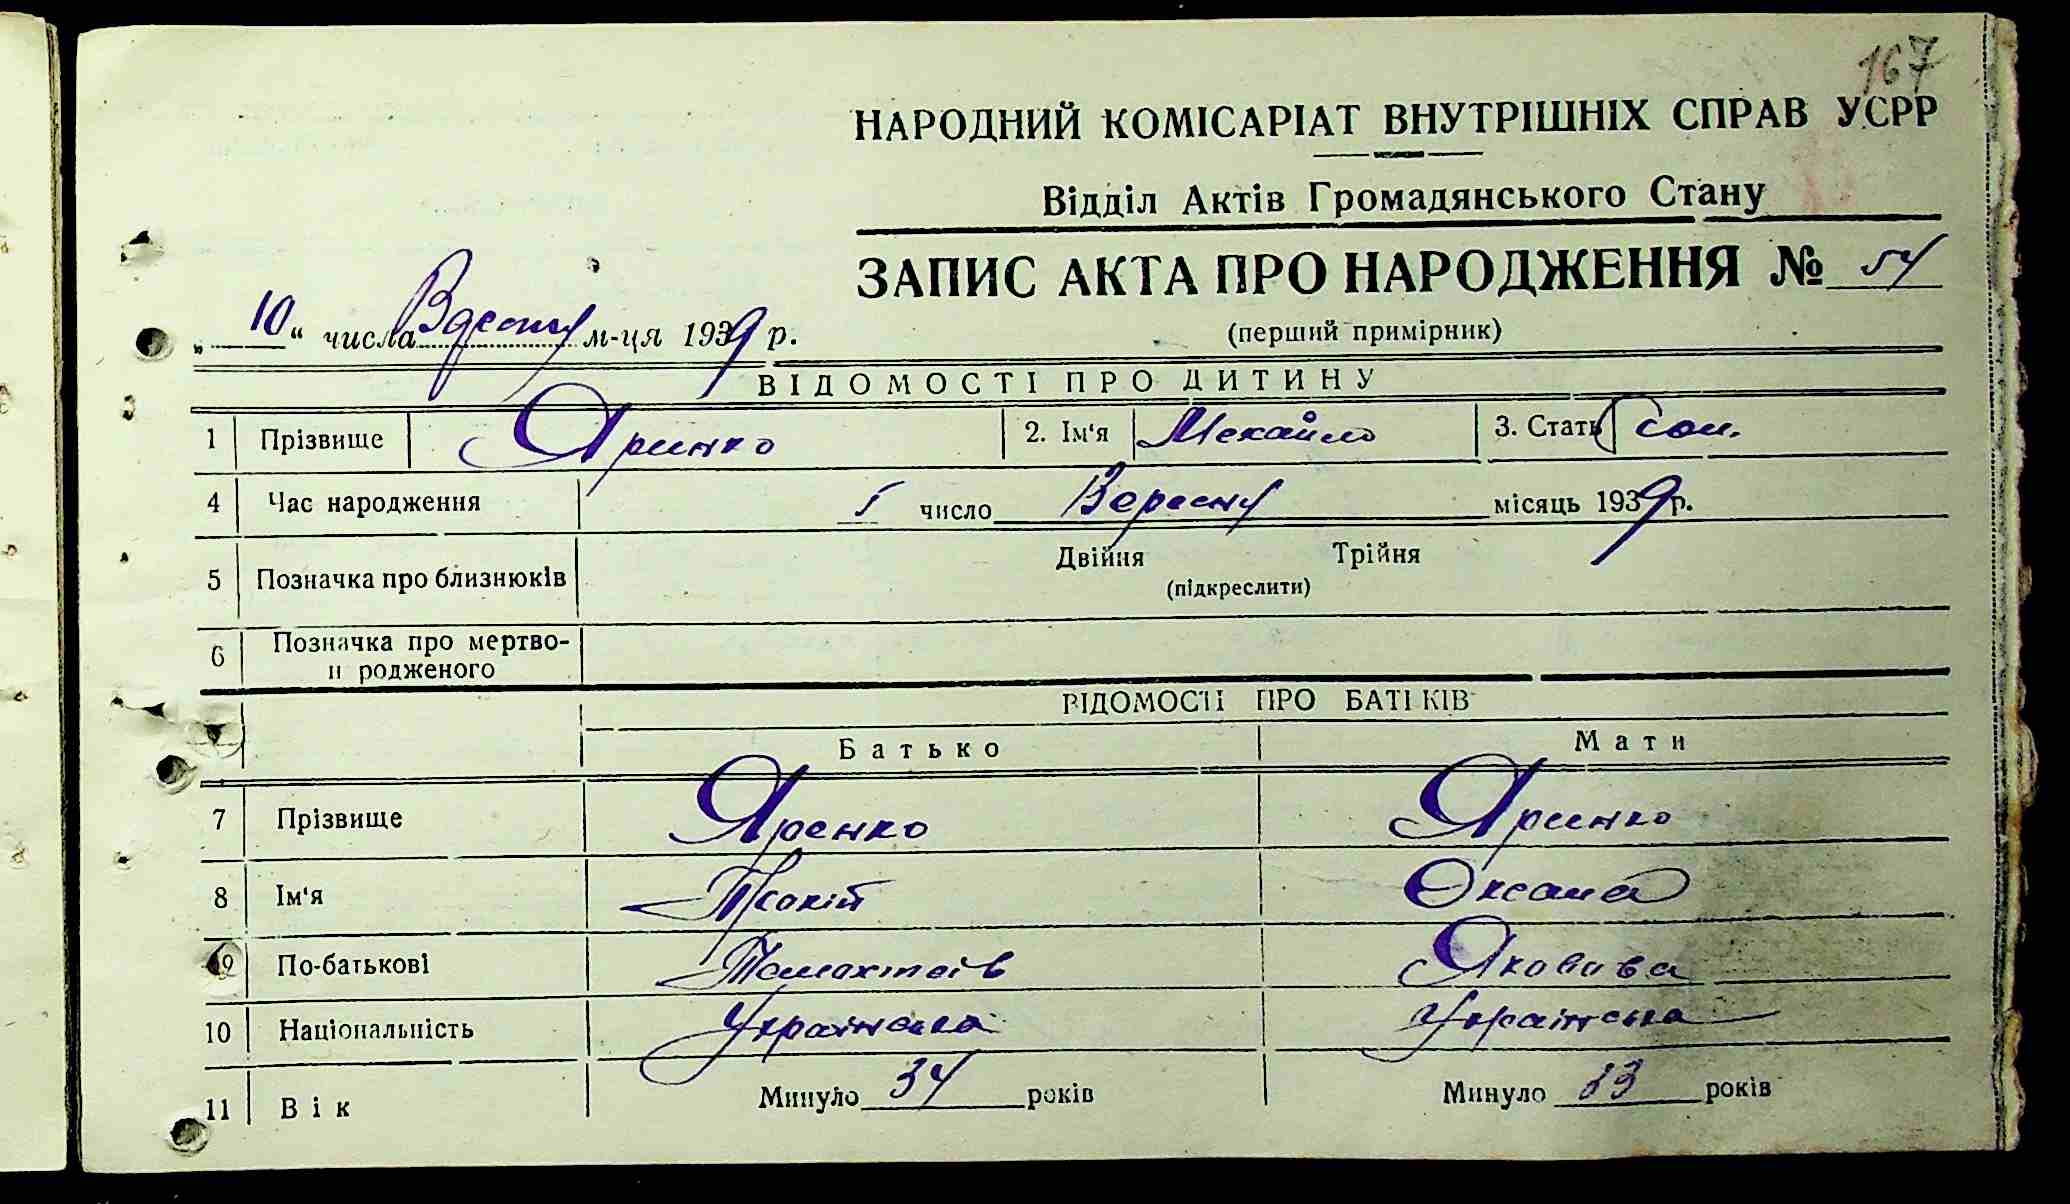 167
НАРОДНИЙ КОМІСАРІАТ ВНУТРІШНІХ СПРАВ УСРР
Відділ Актів Громадянського Стану
ЗАПИС АКТА ПРО НАРОДЖЕННЯ № 54
„10“ числа м-ця 1939 р.
(перший примірник)
ВІДОМОСТІ ПРО ДИТИНУ
1 Прізвище Яринко 2. Ім'я Михайло 3. Стать
4 Час народження 1 число Вересня місяць 1939 р.
5 Позначка про близнюків Двійня Трійня
(підкреслити)
6 Позначка про мертво-
н родженого
ВІДОМОСТІ ПРО БАТЬКІВ
Батько Мати
7 Прізвище Яренко Яринко
8 Ім'я Прокіп Оксана
9 По-батькові Яковива
10 Національність Українська Українська
11 Вік Минуло 34 років Минуло 33 років